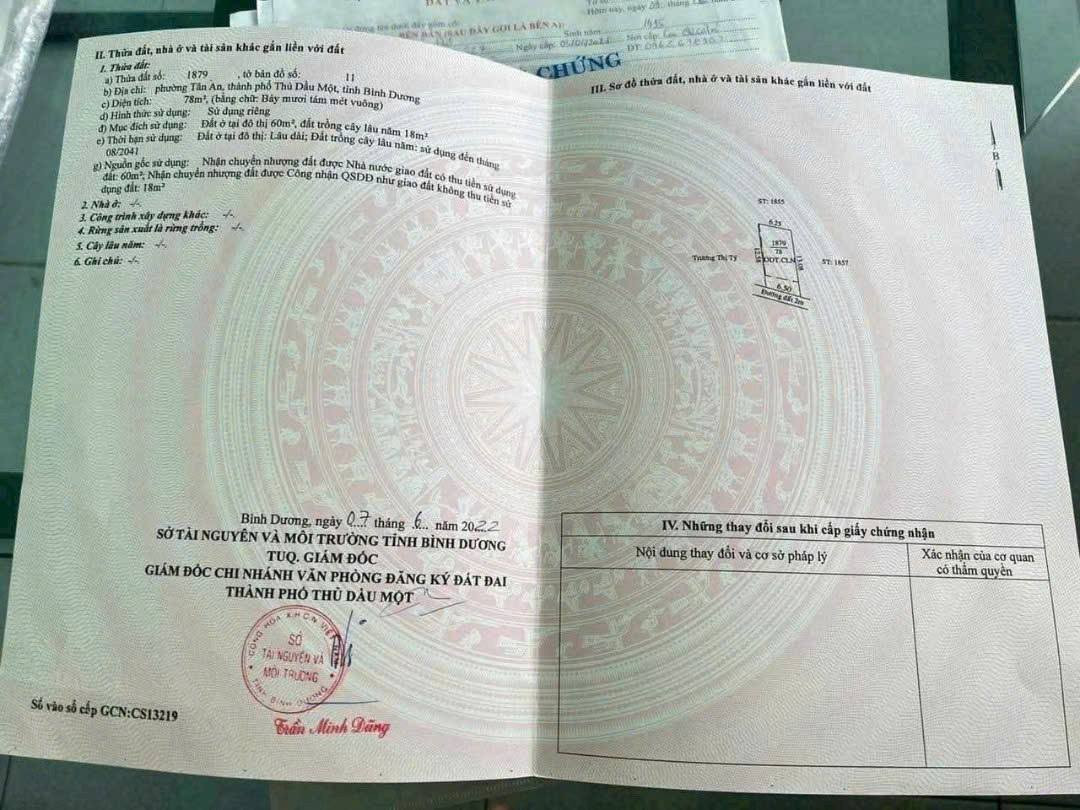 BÊN BÁN (SAU ĐÂY GỌI LÀ BÊN A)
1995
Ngày cấp: 05/01/2022
CHỨNG
II. Thửa đất, nhà ở và tài sản khác gắn liền với đất
1. Thửa đất:
a) Thửa đất số: 1879 , tờ bản đồ số: 11
b) Địa chỉ: phường Tân An, thành phố Thủ Dầu Một, tỉnh Bình Dương
c) Diện tích: 78m², (bằng chữ: Bảy mươi tám mét vuông)
d) Hình thức sử dụng: Sử dụng riêng
đ) Mục đích sử dụng: Đất ở tại đô thị 60m², đất trồng cây lâu năm 18m²
e) Thời hạn sử dụng: Đất ở tại đô thị: Lâu dài; Đất trồng cây lâu năm: sử dụng đến tháng
08/2041
g) Nguồn gốc sử dụng: Nhận chuyển nhượng đất được Nhà nước giao đất có thu tiền sử dụng
đất: 60m²; Nhận chuyển nhượng đất được Công nhận QSDĐ như giao đất không thu tiền sử
dụng đất: 18m²
2. Nhà ở: -/-
3. Công trình xây dựng khác: -/-
4. Rừng sản xuất là rừng trồng: -/-
5. Cây lâu năm: -/-
6. Ghi chú: -/-
Bình Dương, ngày 07 tháng 6 năm 2022
SỞ TÀI NGUYÊN VÀ MÔI TRƯỜNG TỈNH BÌNH DƯƠNG
TUQ. GIÁM ĐỐC
GIÁM ĐỐC CHI NHÁNH VĂN PHÒNG ĐĂNG KÝ ĐẤT ĐAI
THÀNH PHỐ THỦ DẦU MỘT
CỘNG HÒA X.H.C.N VIỆT NAM
SỞ
TÀI NGUYÊN VÀ
MÔI TRƯỜNG
TỈNH BÌNH DƯƠNG
Trần Minh Dũng
Số vào sổ cấp GCN:CS13219
III. Sơ đồ thửa đất, nhà ở và tài sản khác gắn liền với đất
B
ST: 1855
6.25
1879
78
ODT.CLN
Trương Thị Tý
ST: 1857
6.50
Đường đất 2m
IV. Những thay đổi sau khi cấp giấy chứng nhận
Nội dung thay đổi và cơ sở pháp lý
Xác nhận của cơ quan
có thẩm quyền